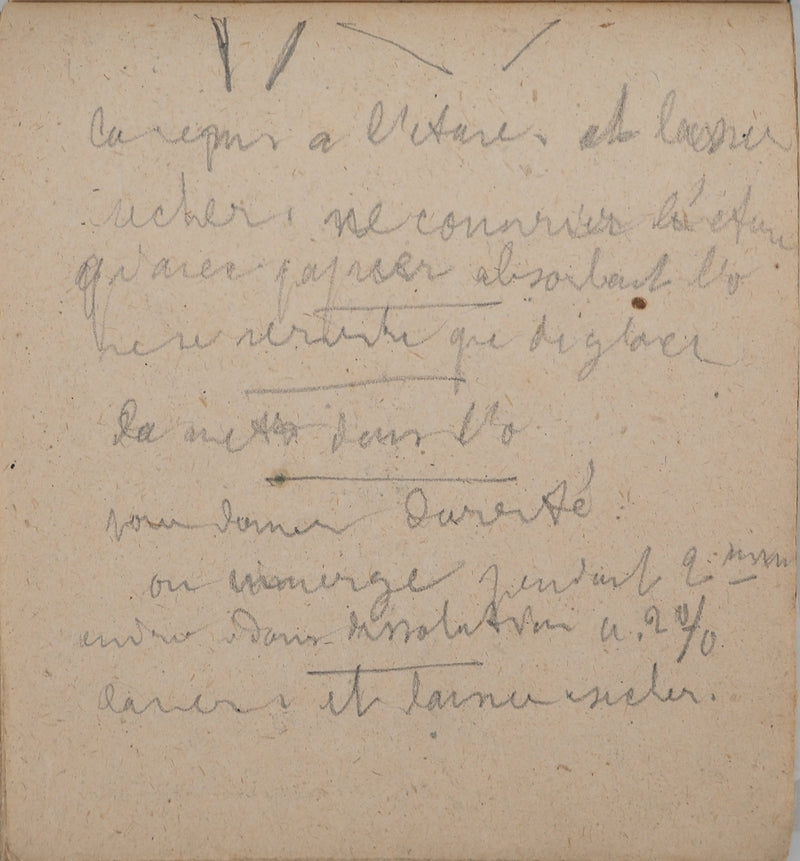 a l'étuve. et laisser
sécher. ne couvrir l'étuve
qu'avec papier absorbant l'o
ne se que de glacer
La mettre dans l'o
pour donner dureté.
on immerge pendant 2 min
dans dissolution a. 2 %
laver. et laisser sécher.